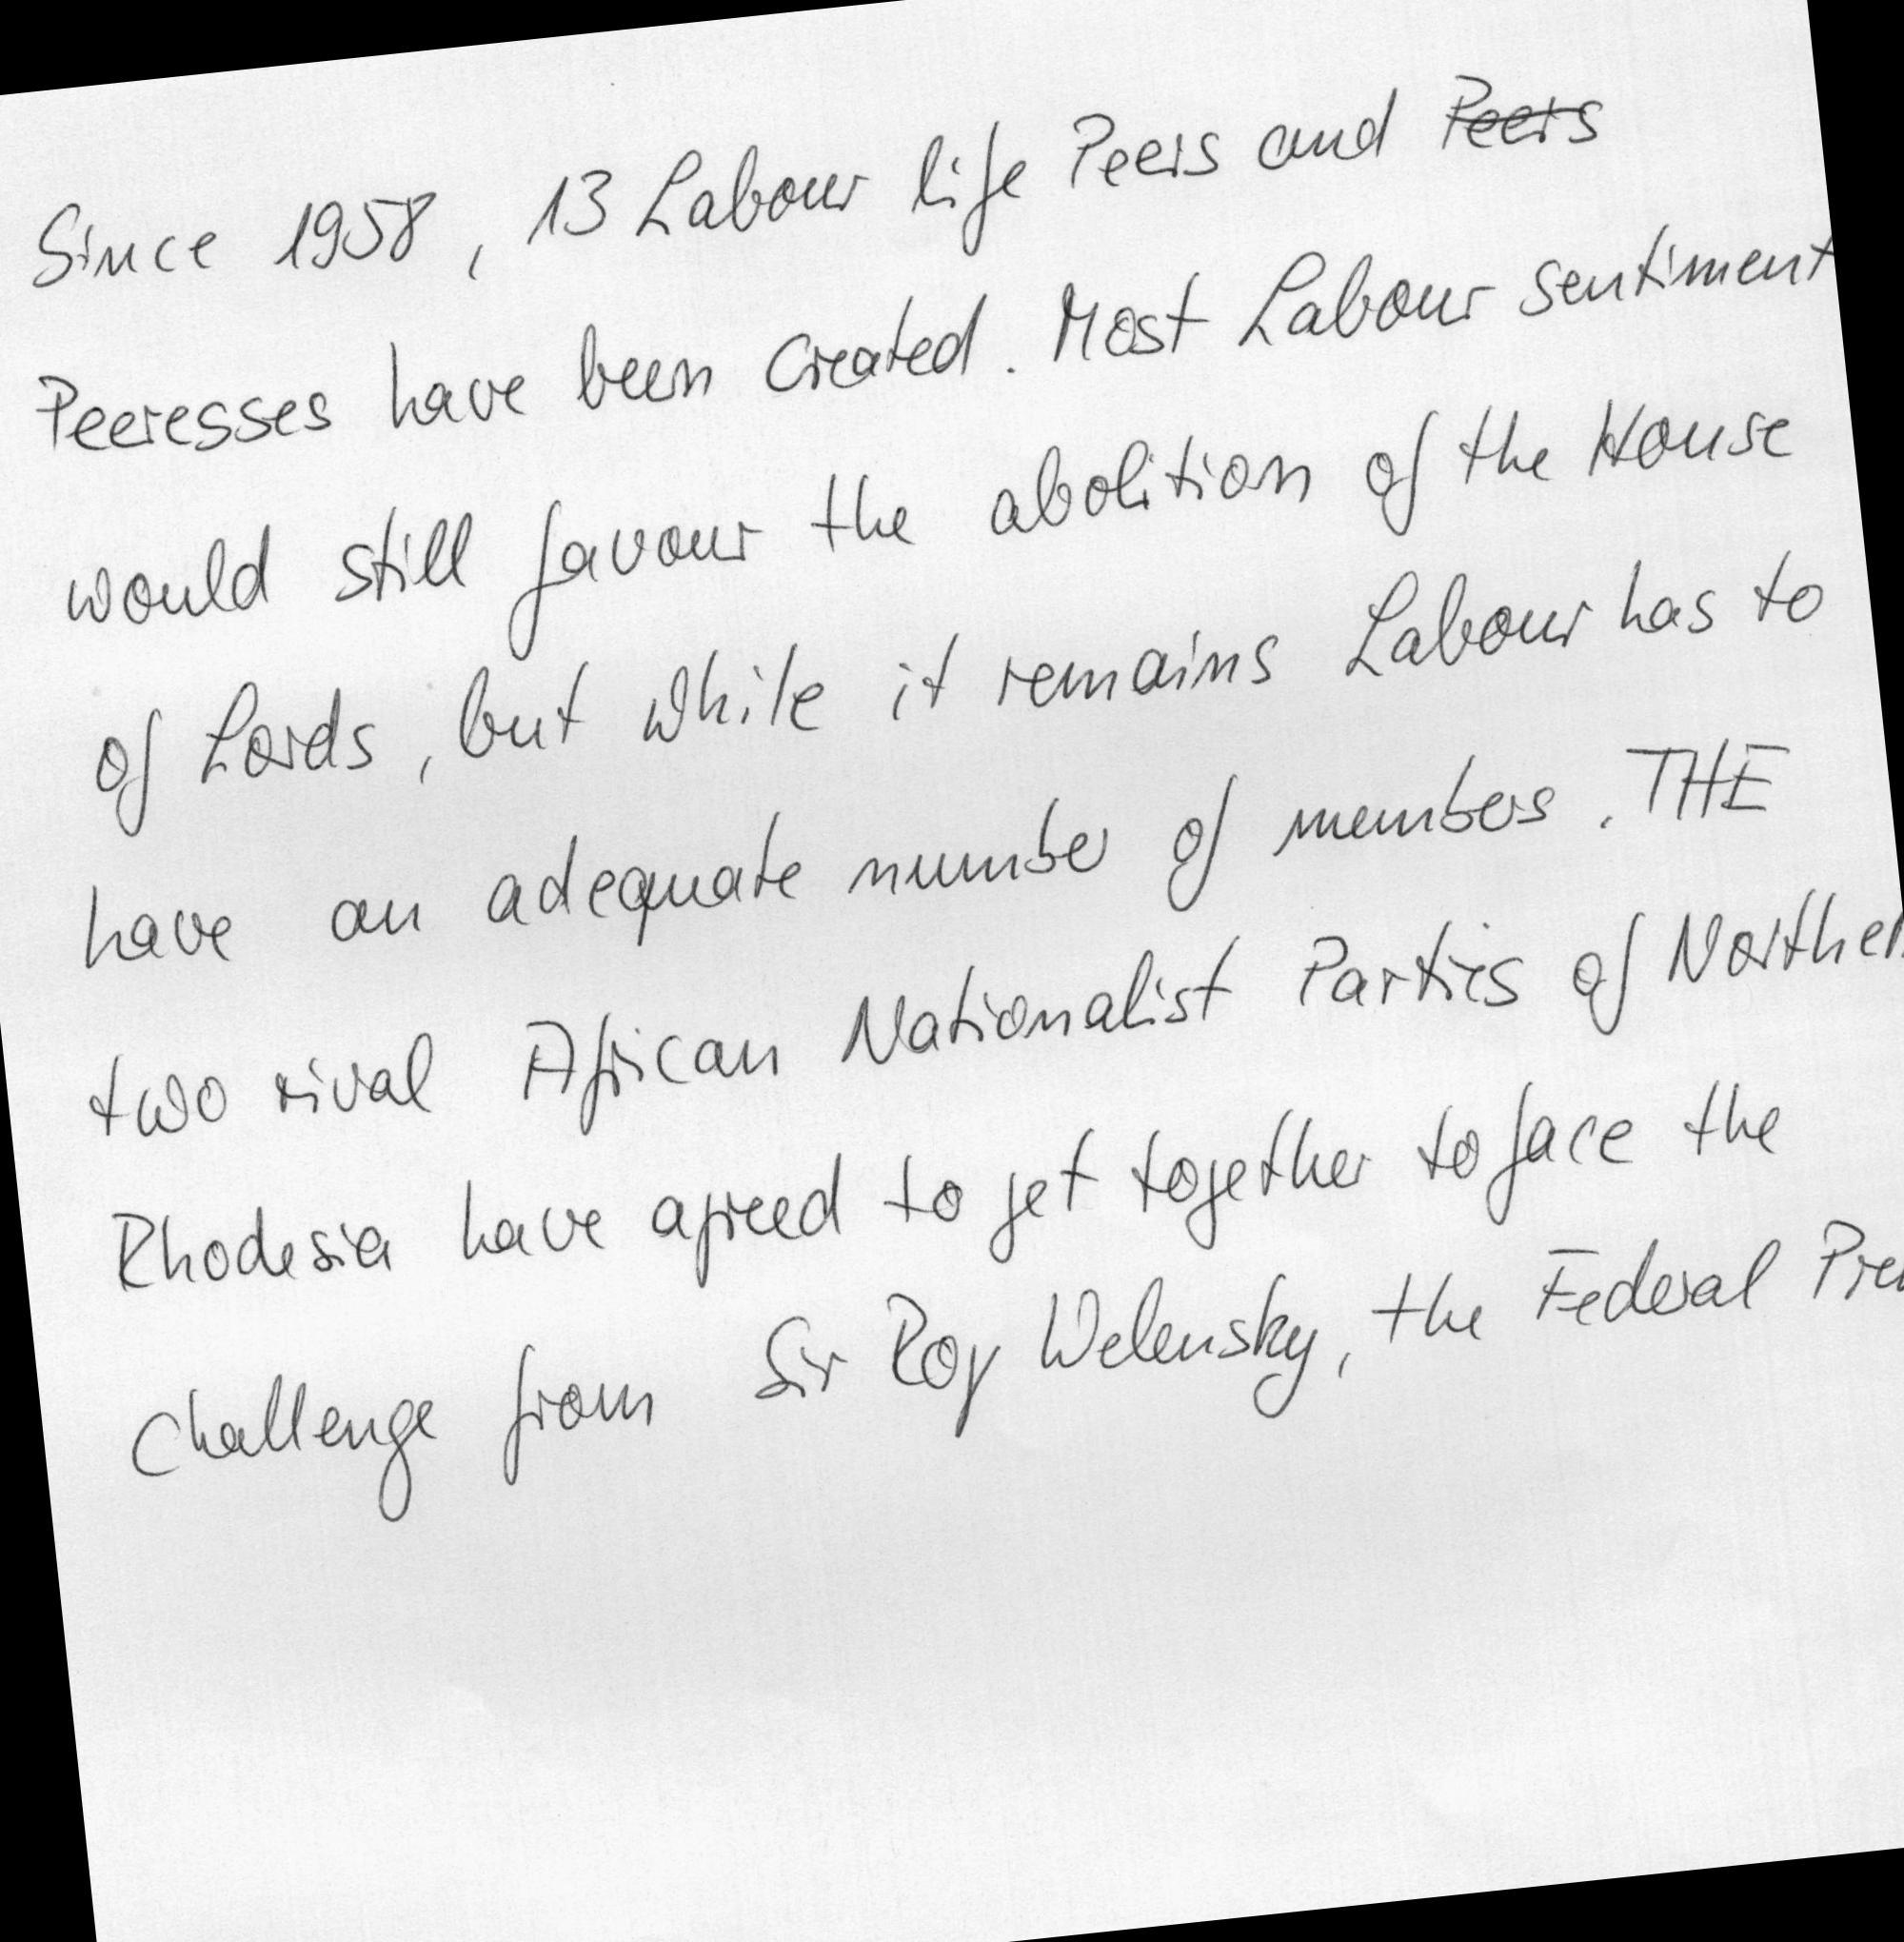 Since 1958, 13 Labour life Peers and Peers
Peeresses have been created. Most Labour sentiment
would still favour the abolition of the House
of Lords, but while it remains Labour has to
have an adequate number of members. THE
two rival African Nationalist Parties of
Rhodesia have agreed to get together to face the
challenge from Sir Roy Welensky, the Federal